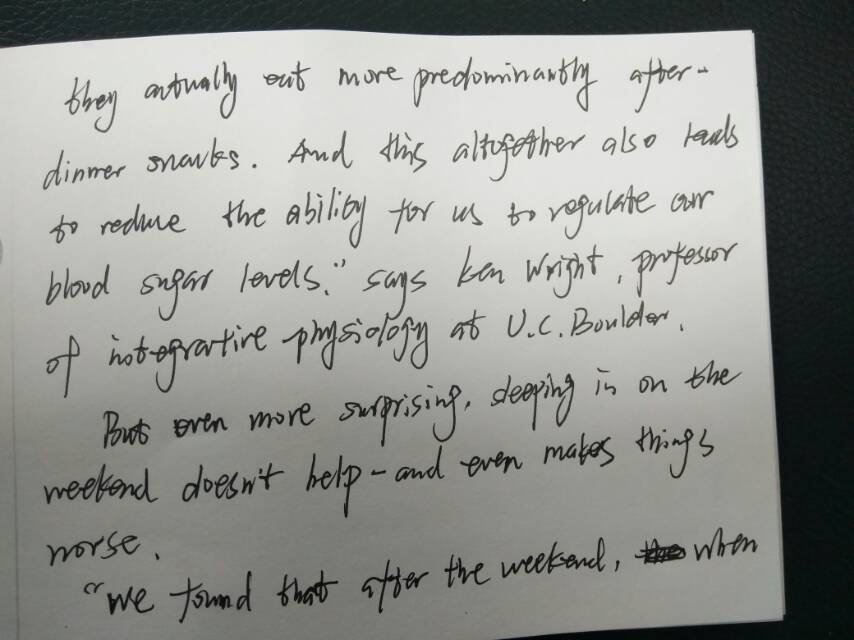 they actually eat more predominantly after-
dinner snacks. And this altogether also leads
to reduce the ability for us to regulate our
blood sugar levels." says Ken Wright, professor
of integrative physiology at U.C. Boulder.
But even more surprising, sleeping in on the
weekend doesn't help - and even makes things
worse.
"We found that after the weekend, when